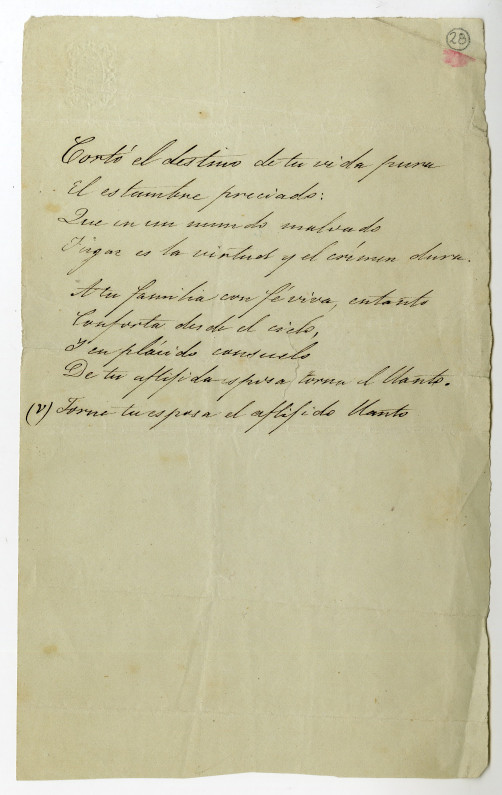 28
Cortó el destino de tu vida pura
El estambre preciado:
Que en un mundo malvado
Fugaz es la virtud y el crímen dura.
A tu familia con fé viva, entanto
Conforta desde el cielo,
Y en plácido consuelo
De tu aflijida esposa torna el llanto.
(v) Torne tu esposa el aflijido llanto